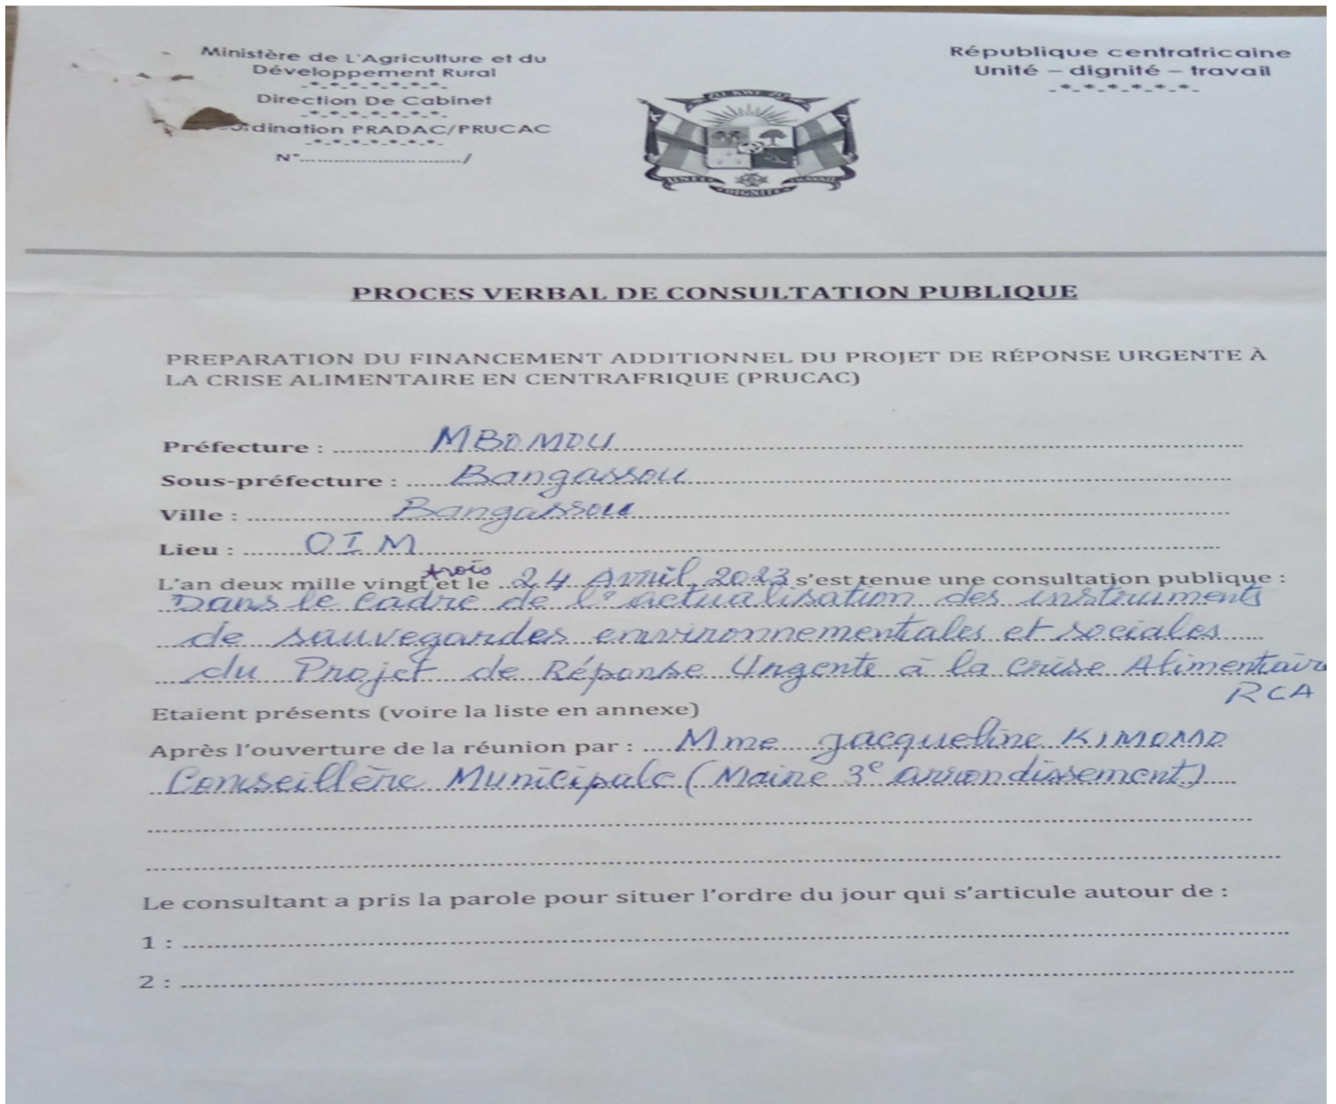 Ministère de L'Agriculture et du
Développement Rural
-*-*-*-*-*-*-*-
Direction De Cabinet
-*-*-*-*-*-*-*-
ordination PRADAC/PRUCAC
-*-*-*-*-*-*-*-
N°............................/
République centrafricaine
Unité – dignité – travail
-*-*-*-*-*-*-
ZO KWE ZO
UNITE DIGNITE TRAVAIL
PROCES VERBAL DE CONSULTATION PUBLIQUE
PREPARATION DU FINANCEMENT ADDITIONNEL DU PROJET DE RÉPONSE URGENTE À
LA CRISE ALIMENTAIRE EN CENTRAFRIQUE (PRUCAC)
Préfecture : MBOMOU
Sous-préfecture : Bangassou
Ville : Bangassou
Lieu : OIM
L'an deux mille vingt trois et le 24 Avril 2023 s'est tenue une consultation publique :
Dans le cadre de l'actualisation des instruments
de sauvegardes environnementales et sociales
du Projet de Réponse Urgente à la crise Alimentaire
RCA
Etaient présents (voire la liste en annexe)
Après l'ouverture de la réunion par : Mme Jacqueline
Conseillère Municipale (Maire 3e arrondissement)
Le consultant a pris la parole pour situer l'ordre du jour qui s'articule autour de :
1 :
2 :